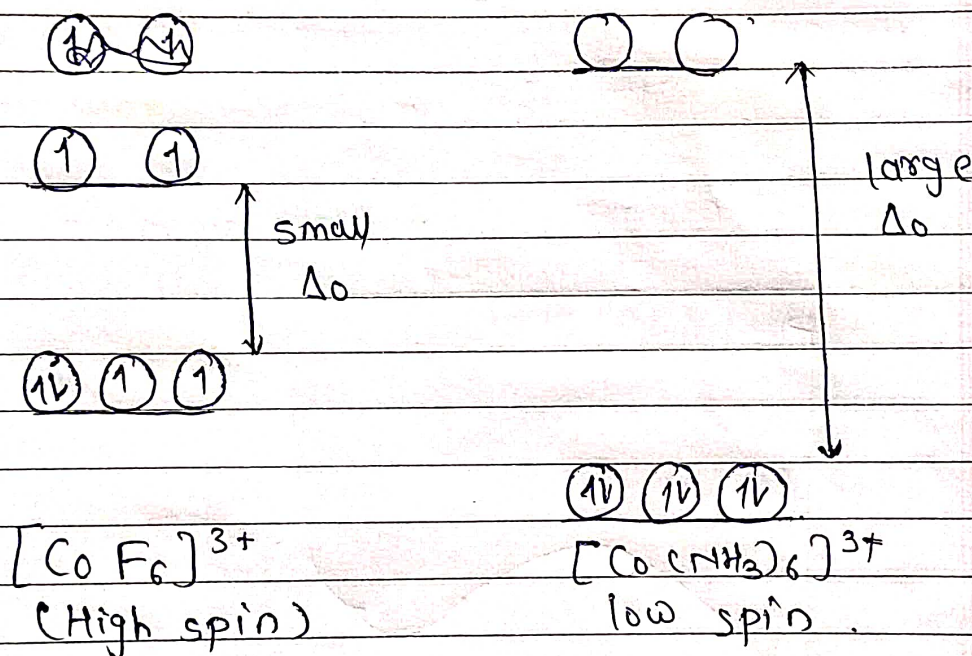 1 1
1 1
small
Δo
large
Δo
1↓ 1 1
1↓ 1↓ 1↓
[CoF6]3+
(High spin)
[Co(NH3)6]3+
low spin.